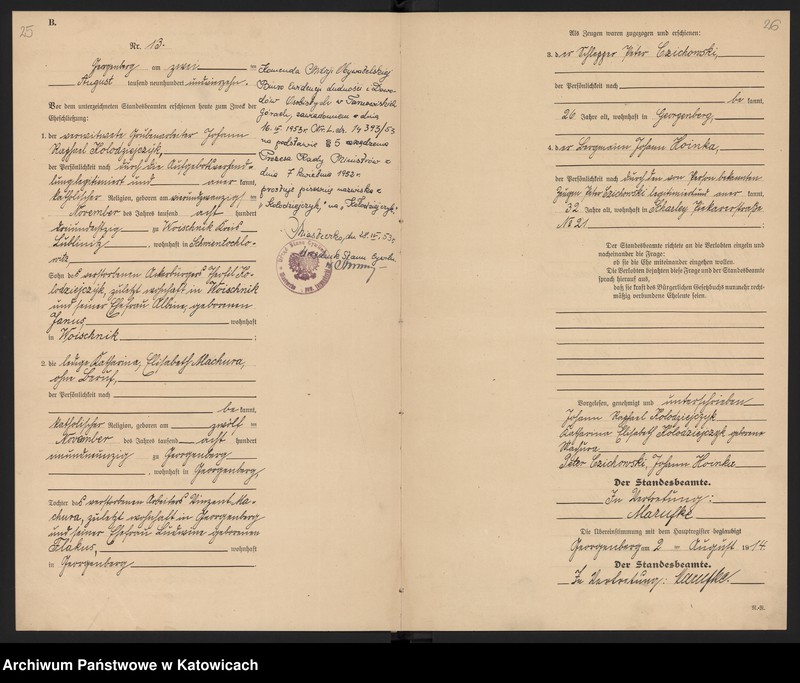 25
B.
Nr. 13.
Georgenberg am zwei ten
August tausend neunhundert undvierzehn.
Vor dem unterzeichneten Standesbeamten erschienen heute zum Zweck der
Eheschließung:
1. der verwitwete Grubenarbeiter Johann
Raphael Kolodziejczyk,
der Persönlichkeit nach durch die Aufgebotsverhand-
lung legitimiert und aner kannt,
katholischer Religion, geboren am
November des Jahres tausend acht hundert
zu Woischnik Kreis
Lublinitz, wohnhaft in Schmentochlo-
witz
Sohn des verstorbenen Ackerbürgers Ko-
lodziejczyk, zuletzt wohnhaft in Woischnik
und seiner Ehefrau Albine, geborenen
Janus, wohnhaft
in Woischnik ;
2. die ledige Katharina, Elisabeth Machura,
ohne Beruf,
der Persönlichkeit nach
be kannt,
katholischer Religion, geboren am zwölf ten
November des Jahres tausend acht hundert
neunundneunzig zu Georgenberg
, wohnhaft in Georgenberg,
Tochter des verstorbenen Arbeiters Vinzent Ma-
chura, zuletzt wohnhaft in Georgenberg
und seiner Ehefrau Ludwine geborenen
Flakus, wohnhaft
in Georgenberg
Komenda Milicji Obywatelskiej
Biuro Ewidencji Ludności i Dowo-
dów Osobistych w Tarnowskich
Górach, zawiadomiła dnia
16. 1953r. Nr. L.dz. 14393/53
na podstawie § 5 zarządzenia
Prezesa Rady Ministrów z
dnia 7 kwietnia 1953r.
prostuje pisownię nazwiska z
"Kolodziejczyk," na "Kołodziejczyk"
Miasteczko, dn. 28. 53r.
Urzędnik Stanu Cywiln.
26
Als Zeugen waren zugezogen und erschienen:
3. der Schlepper Peter Czichowski,
der Persönlichkeit nach
be kannt,
26 Jahre alt, wohnhaft in Georgenberg,
4. der Bergmann Johann Hoinka,
der Persönlichkeit nach durch den von Person bekannten
Zeugen Peter Czichowski legitimiert und aner kannt,
32 Jahre alt, wohnhaft in Scharley Piekarerstraße
№ 21 ;
Der Standesbeamte richtete an die Verlobten einzeln und
nacheinander die Frage:
ob sie die Ehe miteinander eingehen wollen.
Die Verlobten bejahten diese Frage und der Standesbeamte
sprach hierauf aus,
daß sie kraft des Bürgerlichen Gesetzbuchs nunmehr recht-
mäßig verbundene Eheleute seien.
Vorgelesen, genehmigt und unterschrieben
Johann Raphael Kolodziejczyk
Katharina Elisabeth Kolodziejczyk geborene
Machura
Peter Czichowski, Johann Hoinka
Der Standesbeamte.
In Vertretung:
Marufke
Die Übereinstimmung mit dem Hauptregister beglaubigt
Georgenberg am 2 ten August 1914
Der Standesbeamte.
In Vertretung: Marufke.
Archiwum Państwowe w Katowicach